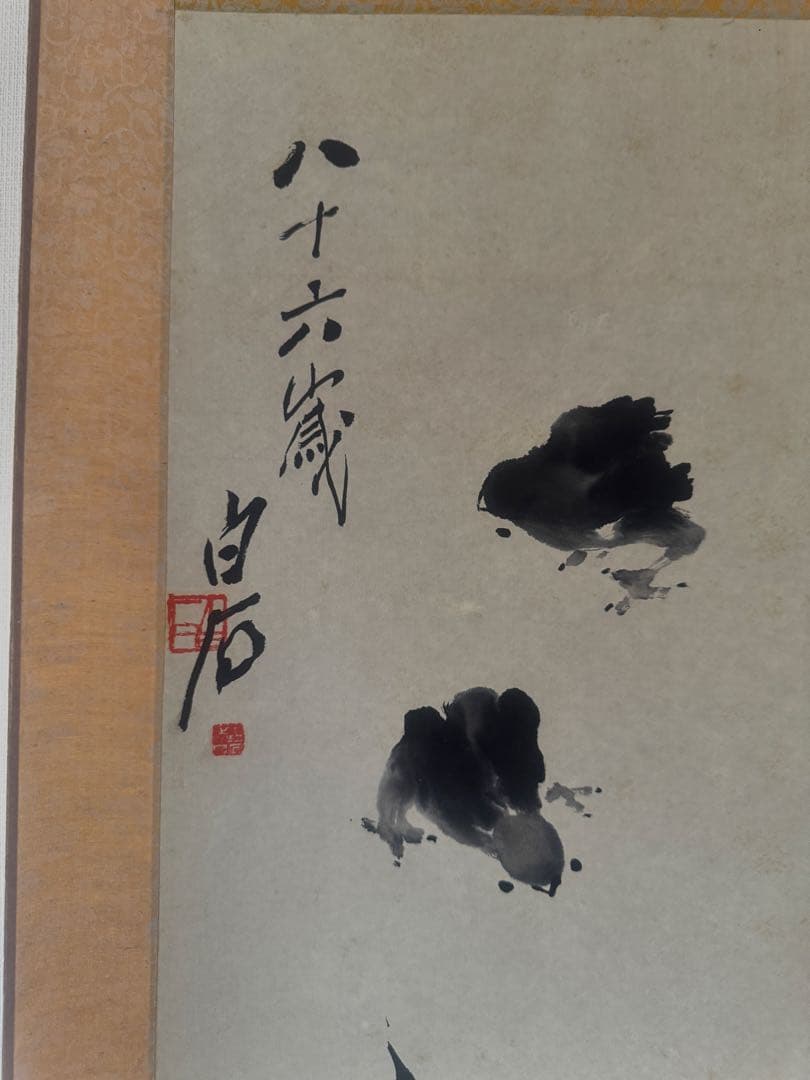 八十六歲
白石